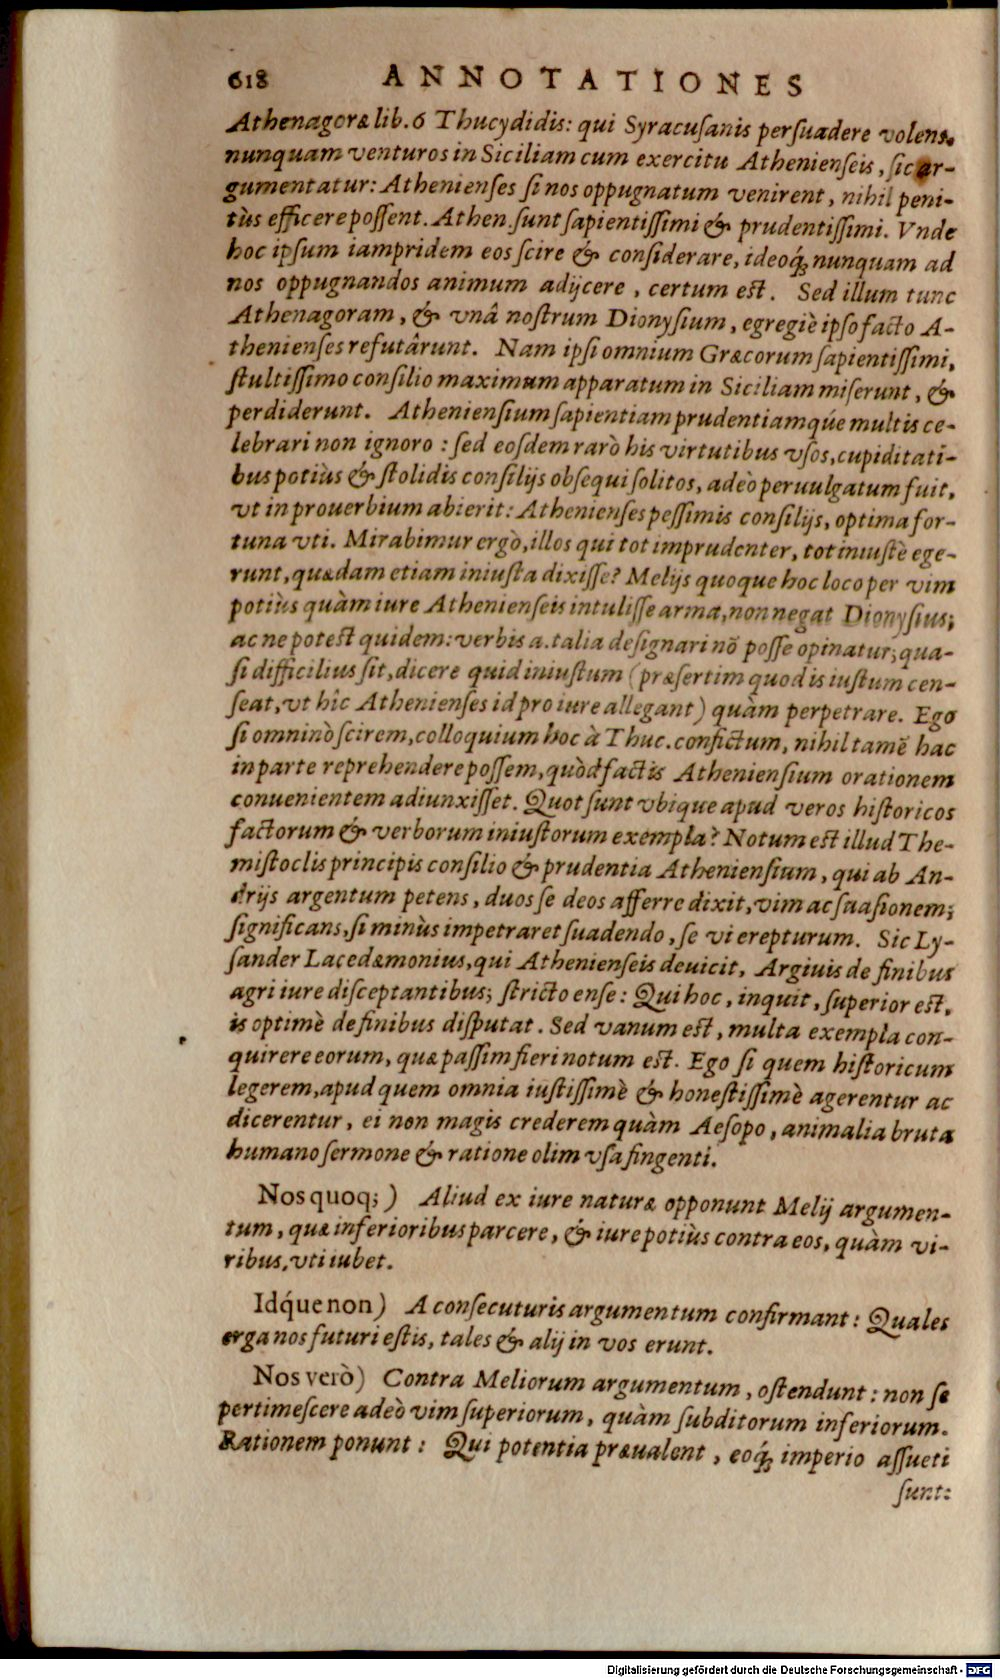 618 ANNOTATIONES
Athenagoræ lib. 6 Thucydidis: qui Syracuſanis perſuadere volens,
nunquam venturos in Siciliam cum exercitu Athenienſeis, ſic ar-
gumentatur: Athenienſes ſi nos oppugnatum venirent, nihil peni-
tùs efficere poſſent. Athen. ſunt ſapientiſſimi & prudentiſſimi. Vnde
hoc ipſum iampridem eos ſcire & conſiderare, ideoq́; nunquam ad
nos oppugnandos animum adijcere, certum eſt. Sed illum tunc
Athenagoram, & vnâ noſtrum Dionyſium, egregiè ipſo facto A-
thenienſes refutârunt. Nam ipſi omnium Græcorum ſapientiſſimi,
ſtultiſſimo conſilio maximum apparatum in Siciliam miſerunt, &
perdiderunt. Athenienſium ſapientiam prudentiamq́ue multis ce-
lebrari non ignoro: ſed eoſdem rarò his virtutibus vſos, cupiditati-
bus potiùs & ſtolidis conſilijs obſequi ſolitos, adeò peruulgatum fuit,
vt in prouerbium abierit: Athenienſes peſſimis conſilijs, optima for-
tuna vti. Mirabimur ergò, illos qui tot imprudenter, tot iniuſtè ege-
runt, quædam etiam iniuſta dixiſſe? Melijs quoque hoc loco per vim
potiùs quàm iure Athenienſeis intuliſſe arma, non negat Dionyſius;
ac ne poteſt quidem: verbis a. talia deſignari nõ poſſe opinatur; qua-
ſi difficilius ſit, dicere quid iniuſtum (præſertim quod is iuſtum cen-
ſeat, vt hîc Athenienſes id pro iure allegant) quàm perpetrare. Ego
ſi omninò ſcirem, colloquium hoc à Thuc. confictum, nihil tamẽ hac
in parte reprehendere poſſem, quòd factis Athenienſium orationem
conuenientem adiunxiſſet. Quot ſunt vbique apud veros hiſtoricos
factorum & verborum iniuſtorum exempla? Notum eſt illud The-
miſtoclis principis conſilio & prudentia Athenienſium, qui ab An-
drijs argentum petens, duos ſe deos afferre dixit, vim ac ſuaſionem;
ſignificans, ſi minùs impetraret ſuadendo, ſe vi erepturum. Sic Ly-
ſander Lacedæmonius, qui Athenienſeis deuicit, Argiuis de finibus
agri iure diſceptantibus; ſtricto enſe: Qui hoc, inquit, ſuperior eſt,
is optimè de finibus diſputat. Sed vanum eſt, multa exempla con-
quirere eorum, quæ paſſim fieri notum eſt. Ego ſi quem hiſtoricum
legerem, apud quem omnia iuſtiſſimè & honeſtiſſimè agerentur ac
dicerentur, ei non magis crederem quàm Aeſopo, animalia bruta
humano ſermone & ratione olim vſa fingenti.
Nos quoq;) Aliud ex iure naturæ opponunt Melij argumen-
tum, quæ inferioribus parcere, & iure potiùs contra eos, quàm vi-
ribus, vti iubet.
Idq́ue non) A conſecuturis argumentum confirmant: Quales
erga nos futuri eſtis, tales & alij in vos erunt.
Nos verò) Contra Meliorum argumentum, oſtendunt: non ſe
pertimeſcere adeò vim ſuperiorum, quàm ſubditorum inferiorum.
Rationem ponunt: Qui potentia præualent, eoq́; imperio aſſueti
ſunt:
Digitalisierung gefördert durch die Deutsche Forschungsgemeinschaft - DFG